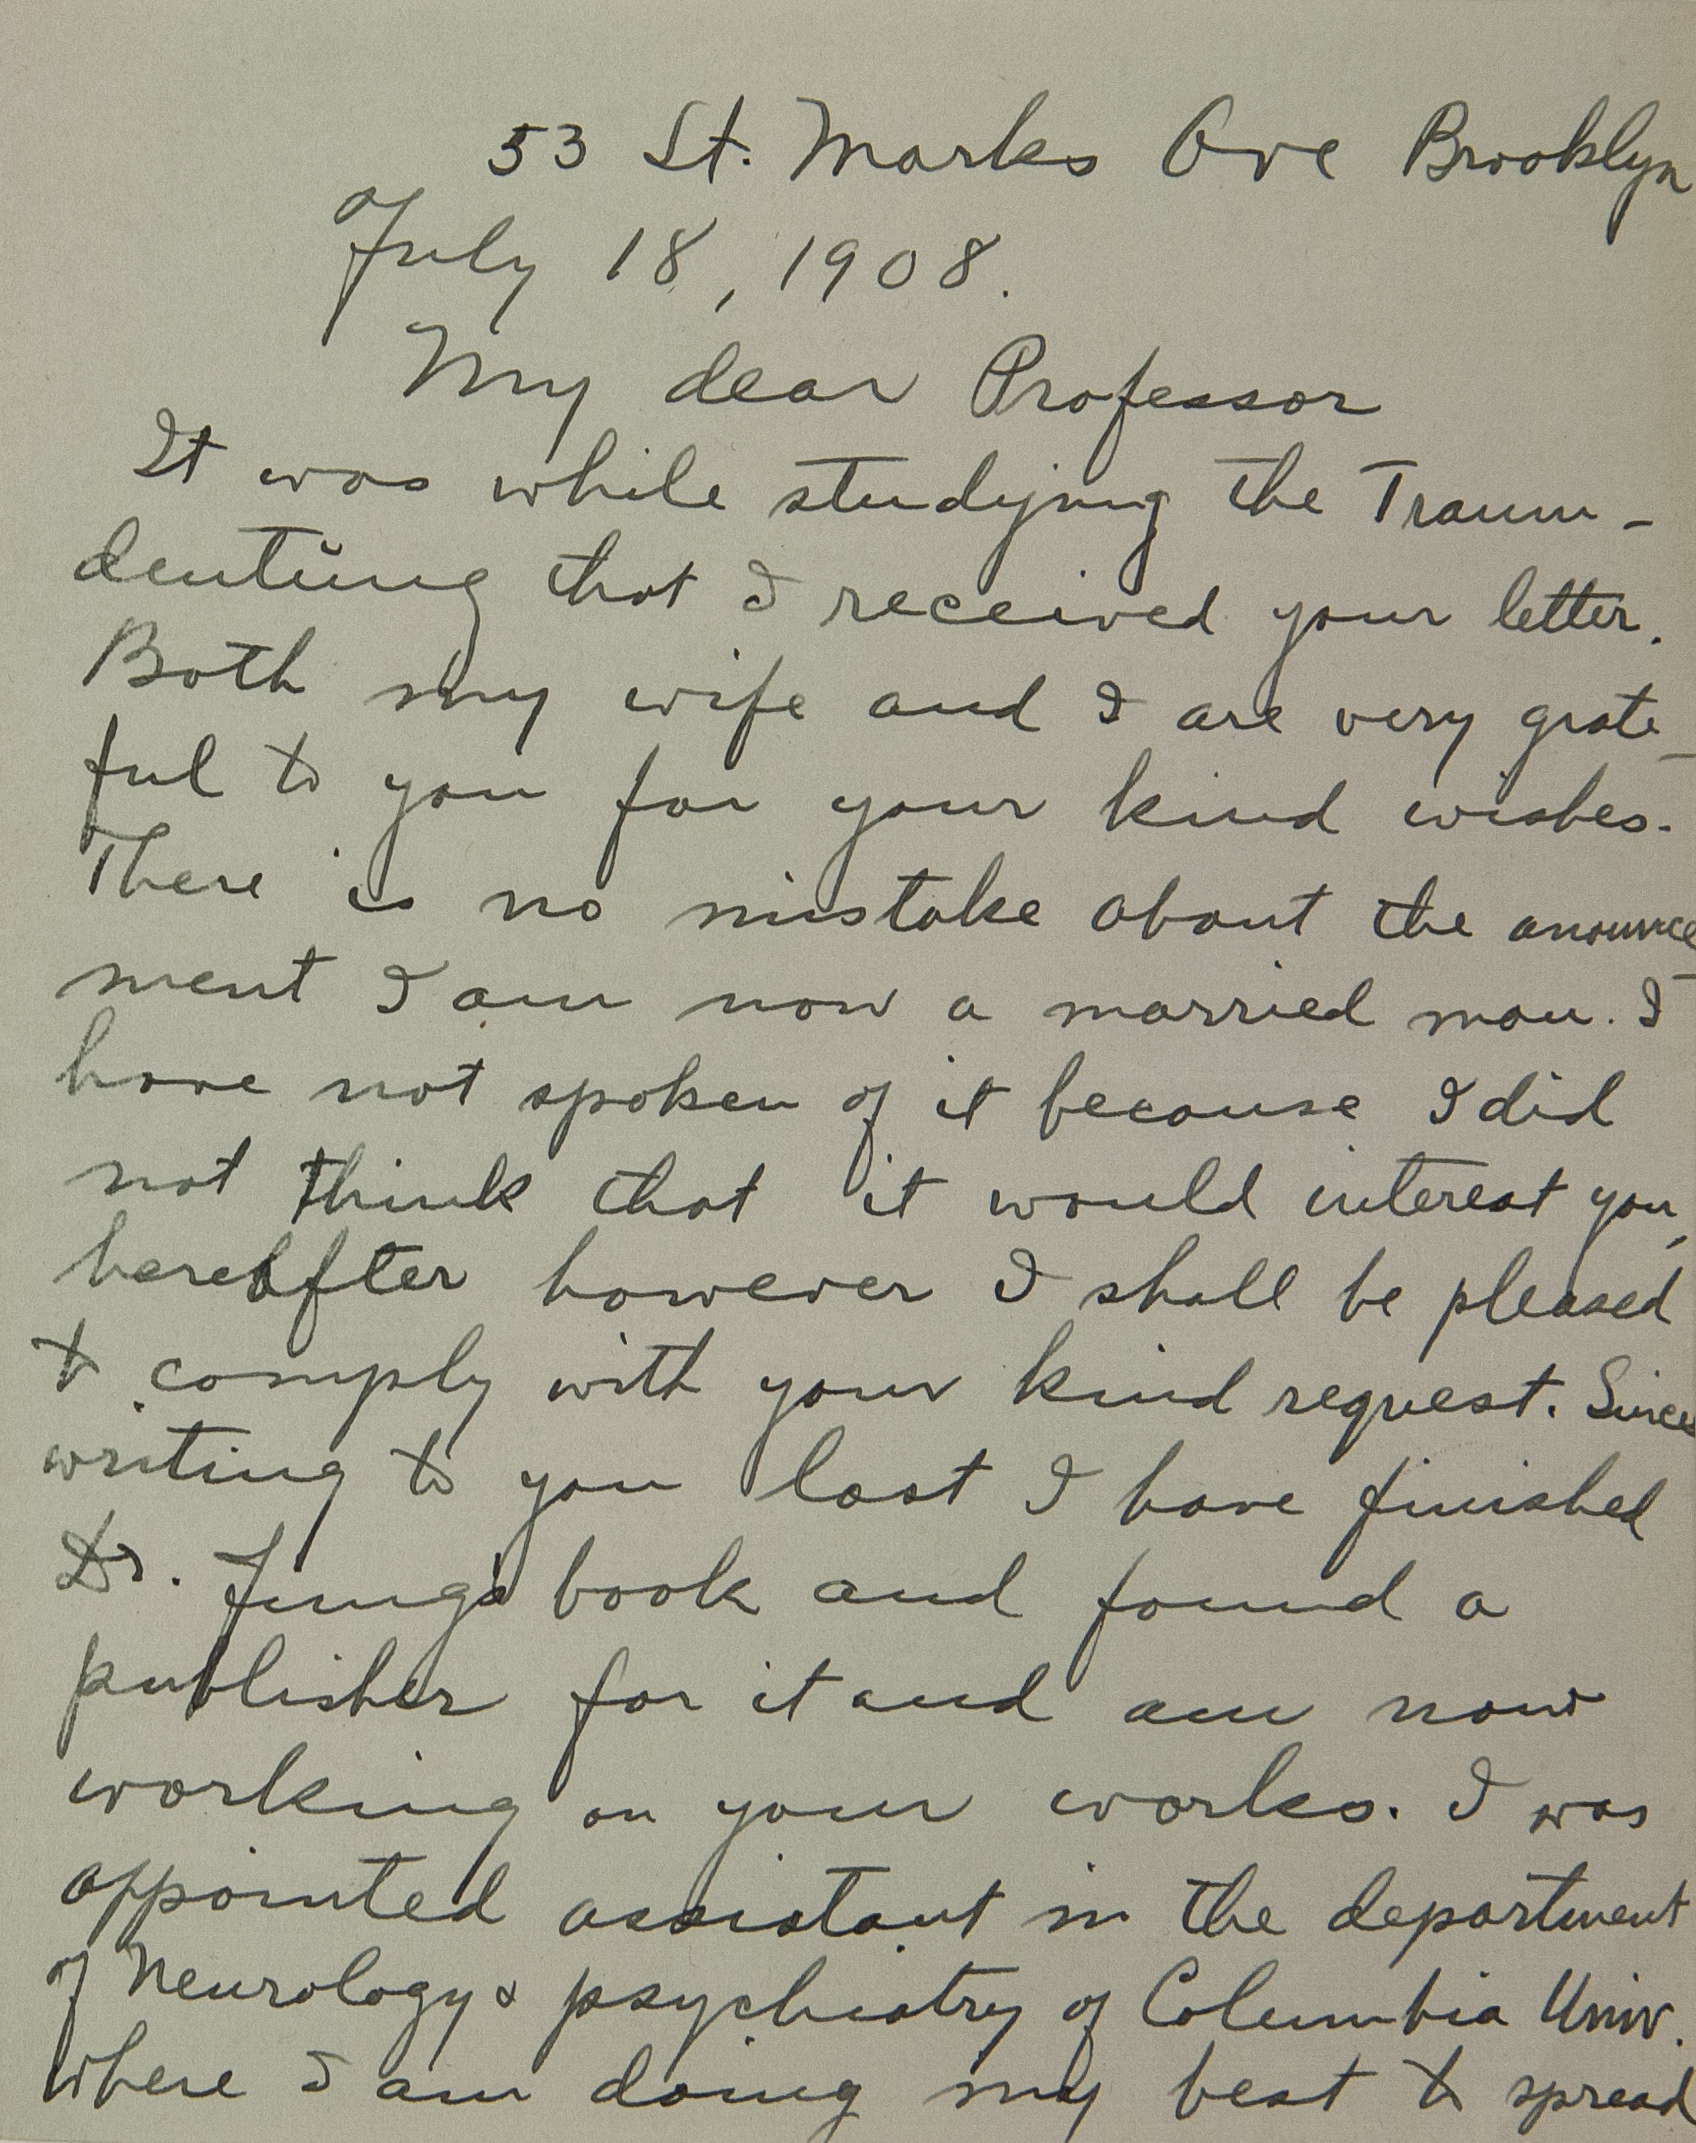 53 St. Marks Ave Brooklyn
July 18, 1908.
My dear Professor
It was while studying the Traum-
deutŭng that I received your letter.
Both my wife and I are very grate-
ful to you for your kind wishes.
There is no mistake about the anounce
ment I am now a married man. I
have not spoken of it because I did
not think that it would interest you,
hereafter however I shall be pleased
to comply with your kind request. Since
writing to you last I have finished
Dr. Jung's book and found a
publisher for it and am now
working on your works. I was
appointed assistant in the department
of Neurology & psychiatry of Columbia Univ.
where I am doing my best to spread